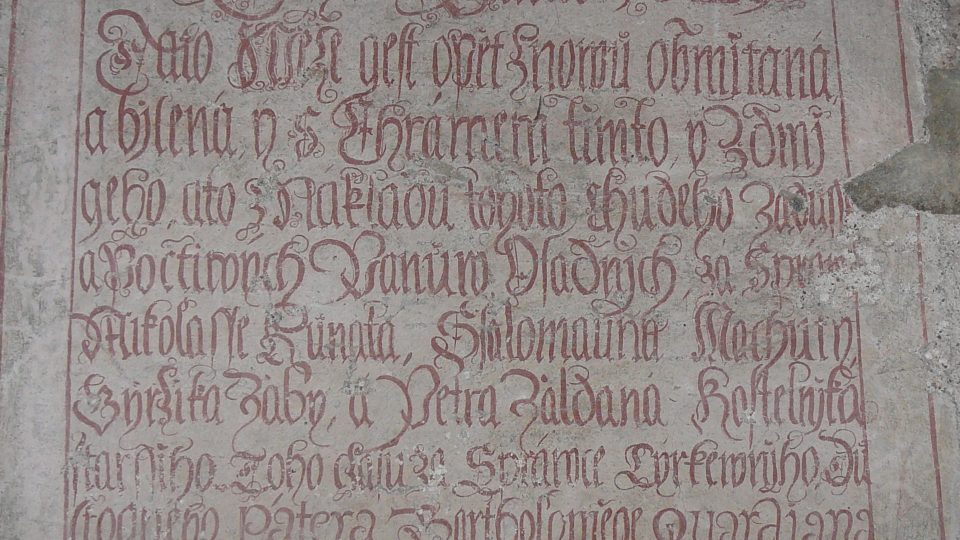 Tato Wěže gest opět znowů obmítaná
a bjlená, y s Chrámem tímto, y Zdmj
geho, ato z Nákladů tohoto chudého Zádussj
a Počtiwých Panůw Osadných, za Spráwy
Mikolasse Kuňata, Ssalomauna Machury,
Gyržika Žáby, a Petra Zaldana Kostelnjka
starssjho. Toho času za Spráwce Cyrkewnjho, Du
stogného Pátera Bartholoměge Quardiana